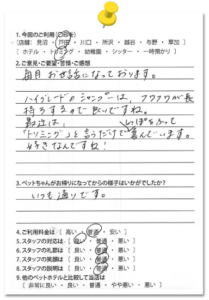 1.今回のご利用(ご住所)
(店舗:見沼・戸田・川口・所沢・越谷・与野・草加)
(ホテル・トリミング・幼稚園・シッター・一時預かり)
2.ご意見・ご要望・苦情・ご感想
毎月お世話になっております。
ハイグレードのシャンプーは、フワフワが長
持ちするので助かりですね。
最近は、しっぽをふって
「トリミング」と言うだけで喜んでいます。
好きなんですね!
3.ペットちゃんがお帰りになってからの様子はいかがでしたか?
いつも通りです。
4.ご利用料金は(高い・普通・安い)
5.スタッフの対応は(良い・普通・悪い)
6.スタッフの礼節は(良い・普通・悪い)
7.スタッフの笑顔は(良い・普通・悪い)
8.スタッフの説明は(良い・普通・悪い)
9.他のペットホテルと比較して当店は
(非常に良い・良い・普通・やや悪い・悪い)